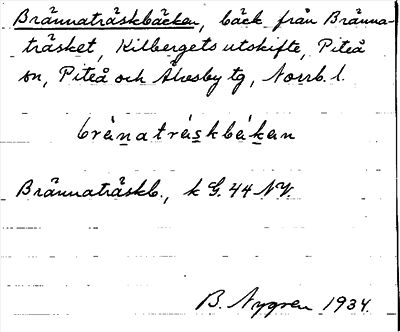 Brännaträskbäcken, bäck från Bränna-
träsket, Kilbergets utskifte, Piteå
sn, Piteå och Älvsby tg, Norrb. l.
brånatråskbåkan
Brännaträskb., k G. 44 NV.
B. Nygren 1934.